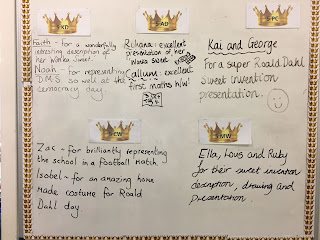 5KD
Faith - for a wonderfully
interesting description of
her Wonka Sweet.
Noah - for representing
DMS so well at the
democracy day.
5AO
Rihana: excellent
presentation of her
Wonka sweet
Callum: excellent
first maths H/W!
5PC
Kai and George
For a super Roald Dahl
Sweet invention
presentation.
5CW
Zac - for brilliantly representing
the school in a football match.
Isobel - for an amazing home
made costume for Roald
Dahl day
5MW
Ella, Louis and Ruby
for their sweet invention
description, drawing and
Presentation